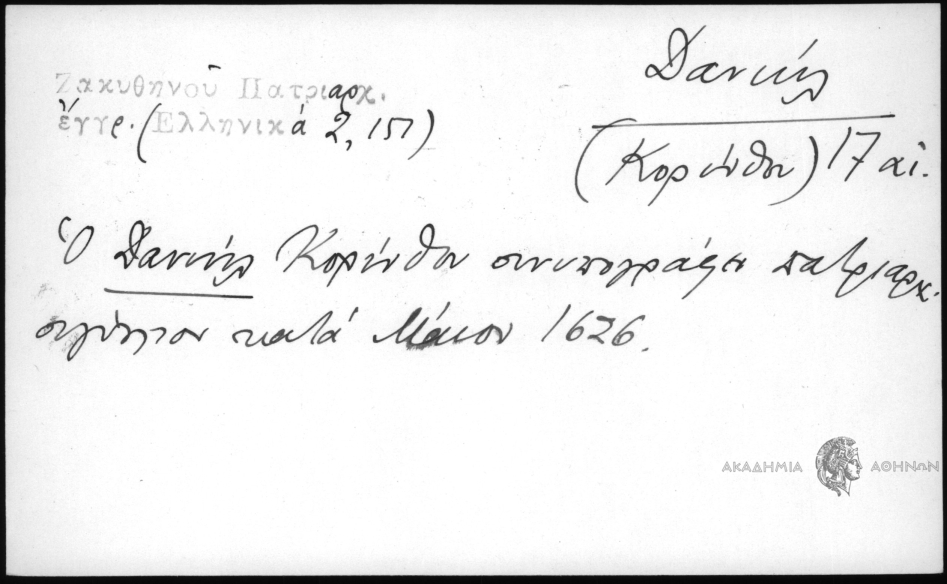 Ζακυθηνοῦ Πατριαρχ.
ἔγγρ. (Ἑλληνικά 2, 151)
Δανιήλ
(Κορίνθου) 17 αἰ.
Ὁ Δανιήλ Κορίνθου συνυπογράφει πατριαρχ.
σιγίλλιον κατά Μάιον 1626.
ΑΚΑΔΗΜΙΑ ΑΘΗΝΩΝ